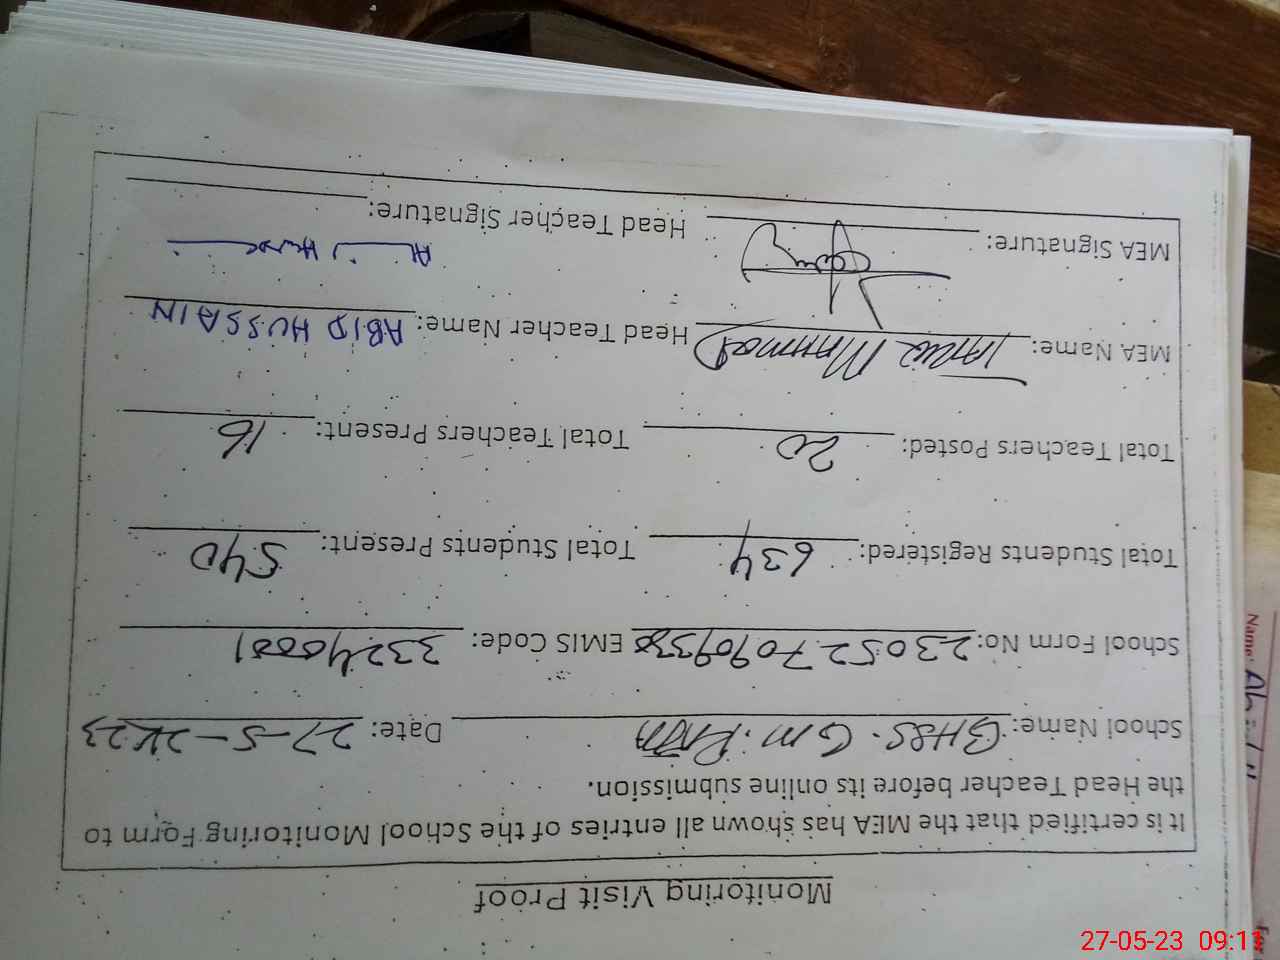 Monitoring Visit Proof
It is certified that the MEA has shown all entries of the School Monitoring Form to
the Head Teacher before its online submission.
School Name: GHSS. G.M. Date: 27-5-2023
School Form No: EMIS Code: 33240001
Total Students Registered: 634 Total Students Present: 540
Total Teachers Posted: 20 Total Teachers Present: 16
MEA Name: Tariq Mahmood Head Teacher Name: ABID HUSSAIN
MEA Signature: Head Teacher Signature:
Name:
27-05-23 09:11